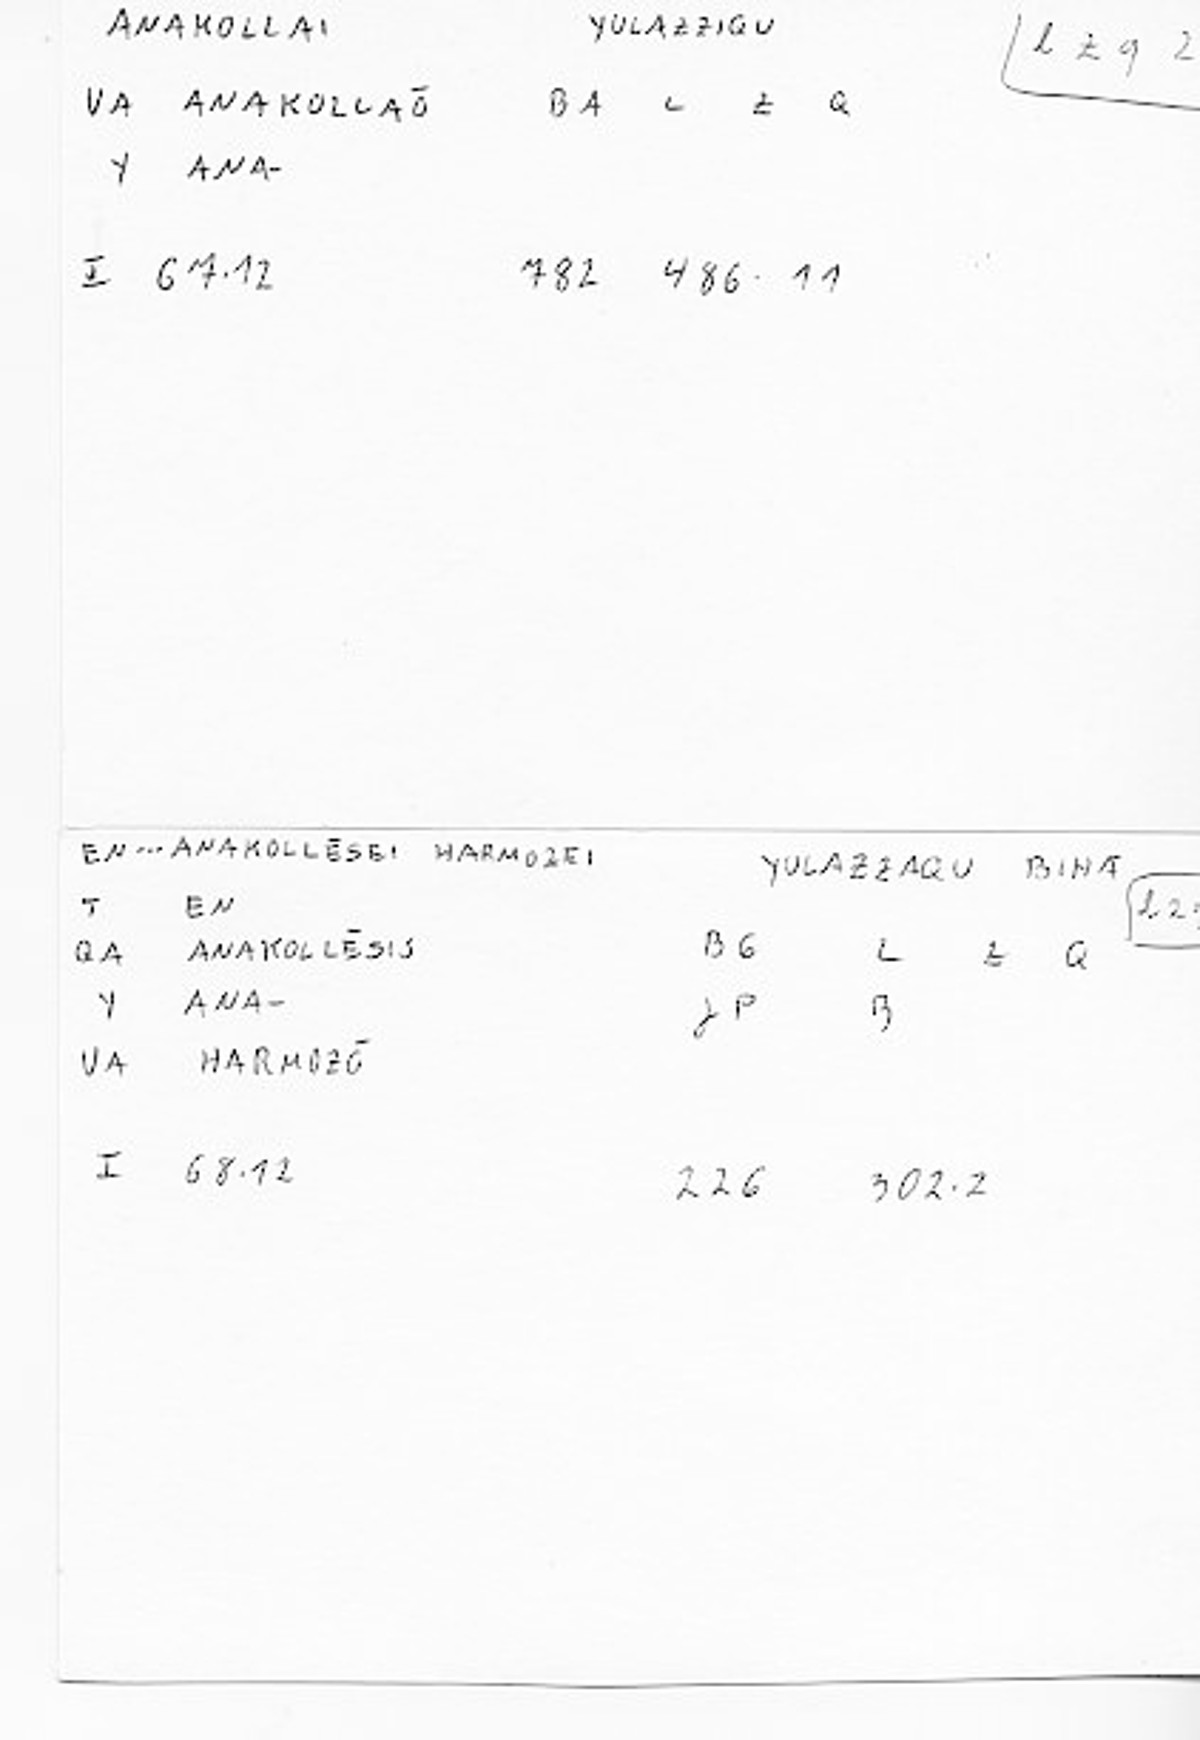 ANAKOLLAI YULAZZIQU
l z q 2
VA ANAKOLLAŌ BA L Z Q
Y ANA-
I 67.12 782 486. 11
EN...ANAKOLLĒSEI HARMOZEI YULAZZAQU BIHĀ
T EN
QA ANAKOLLĒSIS BG L Z Q
Y ANA- JP B
VA HARMOZŌ
I 68.12 226 302.2